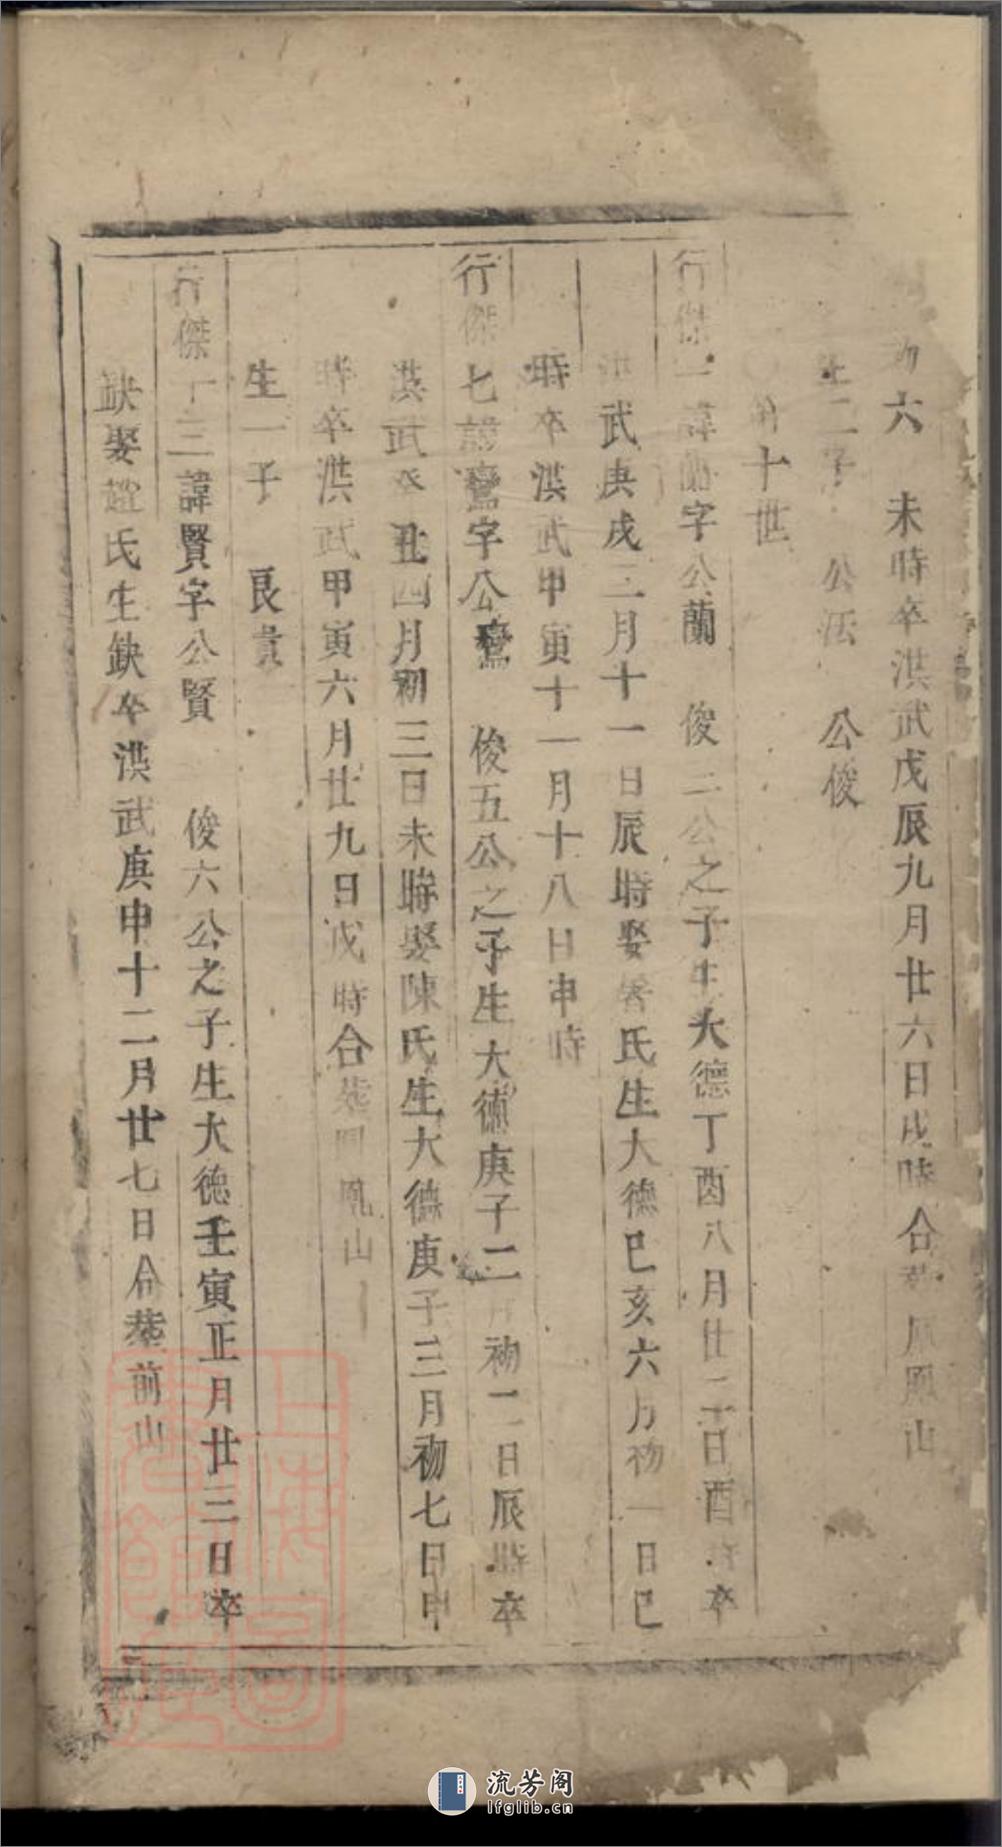 六 未時卒洪武戊辰九月廿六日戌時合葬鳳凰山
生二子 公法 公俊
第十世
行傑一諱 字公蘭 俊二公之子生大德丁酉八月廿二日酉時卒
洪武庚戌三月十一日辰時娶 氏生大德己亥六月初一日巳
時卒洪武甲寅十一月十八日申時
行傑七諱鸞字公鸞 俊五公之子生大德庚子二月初二日辰時卒
洪武 丑四月初三日未時娶陳氏生大德庚子三月初七日申
時卒洪武甲寅六月廿九日戌時合葬鳳凰山
生一子 良貴
行傑十三諱賢字公賢 俊六公之子生大德壬寅正月廿三日卒
缺娶趙氏生缺卒洪武庚申十二月廿七日合葬前山
上海圖書館藏
流芳阁
lfglib.cn